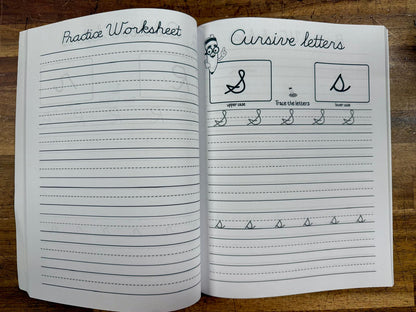 Practice Worksheet
Cursive letters
S s
upper case Trace the letters lower case
S S S S S
s s s s s s